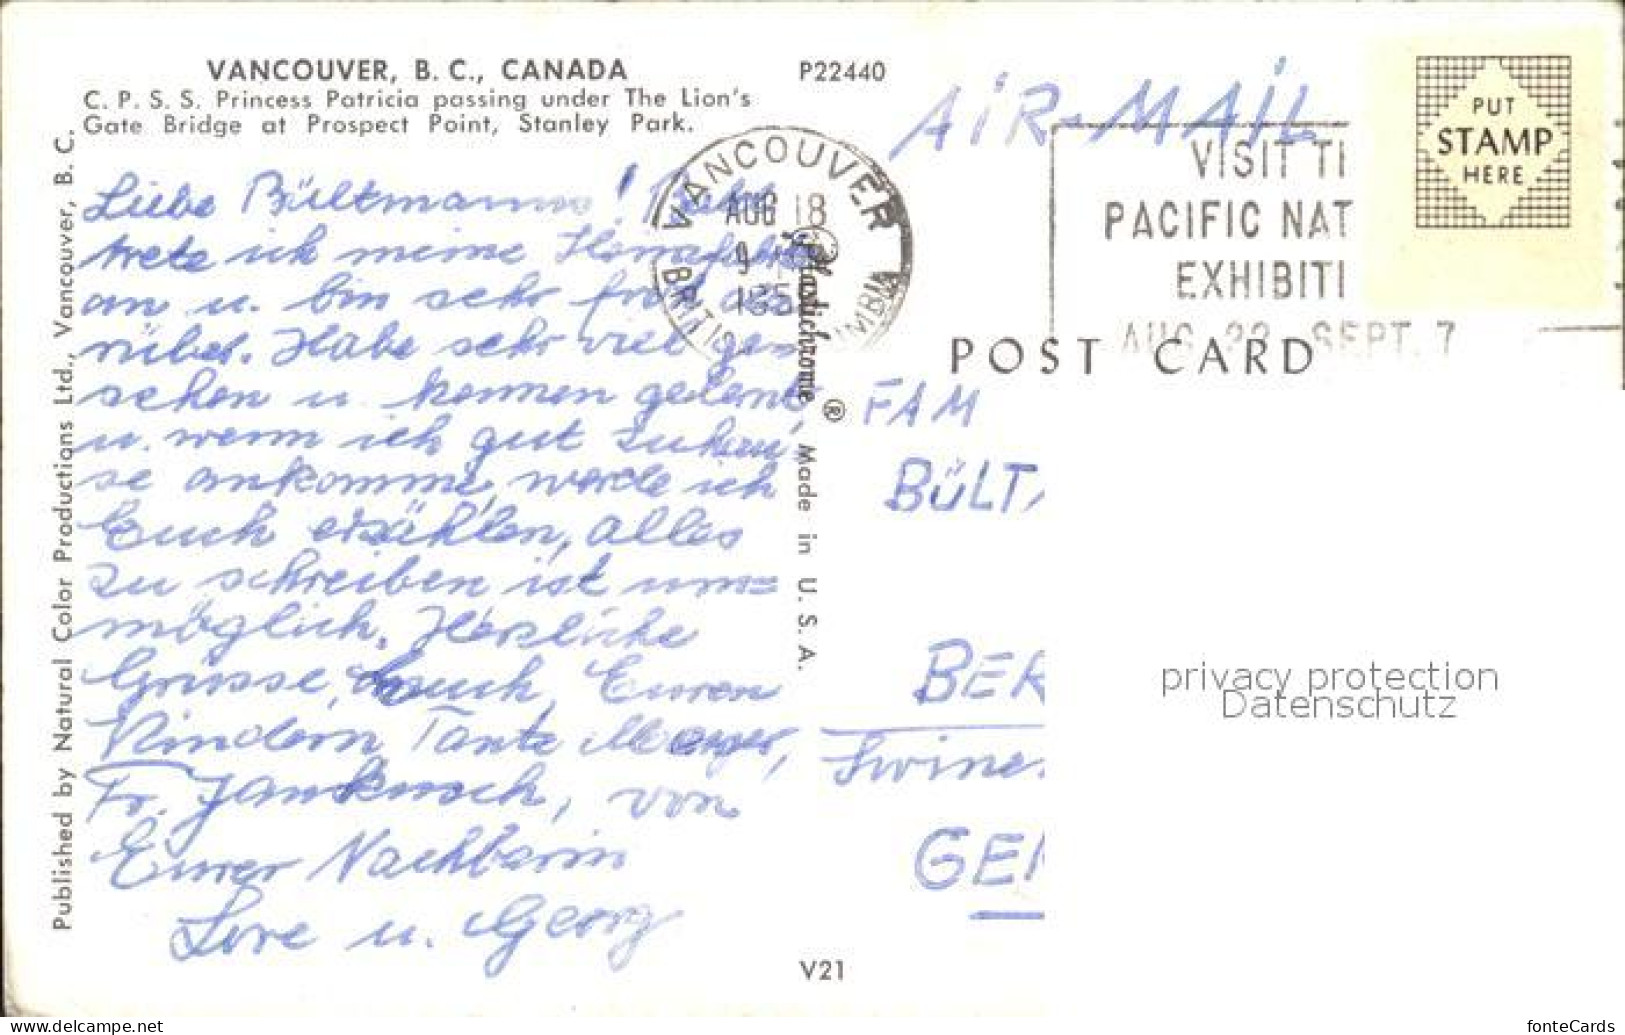 VANCOUVER, B. C., CANADA
C. P. S. S. Princess Patricia passing under The Lion's
Gate Bridge at Prospect Point, Stanley Park.
P22440
AIR-MAIL
PUT
STAMP
HERE
VANCOUVER
AUG 18
9
BRITIS
MBIA
VISIT T
PACIFIC NAT
EXHIBITI
AUG. 22 SEPT. 7
POST CARD
Liebe Bültmanns!
trete ich meine
an u. bin sehr froh
rüber. Habe sehr viel ge=
sehen u. kennen gelernt,
u. wenn ich gut zuhau=
se ankomme, werde ich
Euch erzählen, alles
zu schreiben ist un=
möglich. Herzliche
Grüsse, Euch, Euren
Kindern, Tante
Fr. von
Eurer Nachbarin
Lore u. Georg
FAM
BÜLT
BER
Swine
GE
Published by Natural Color Productions Ltd., Vancouver, B. C.
Plastichrome ® Made in U. S. A.
V21
privacy protection
Datenschutz
www.delcampe.net
fonteCards